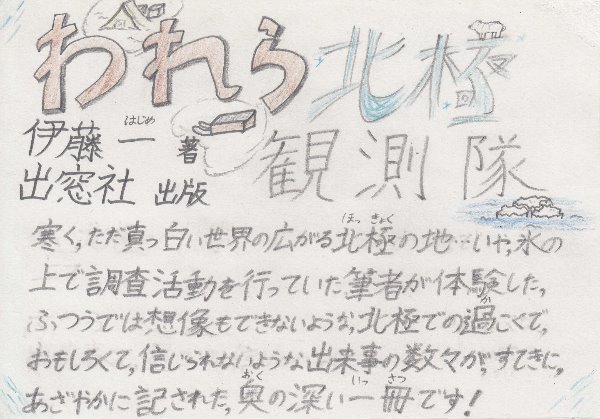 われら北極
観測隊
伊藤一 著
はじめ
出窓社 出版
寒く、ただ真っ白い世界の広がる北極の地…いや、氷の
ほっきょく
上で調査活動を行っていた筆者が体験した、
ふつうでは想像もできないような、北極での過こくで、
か
おもしろくて、信じられないような出来事の数々が、すてきに、
あざやかに記された、奥の深い一冊です!
おく
いっさつ